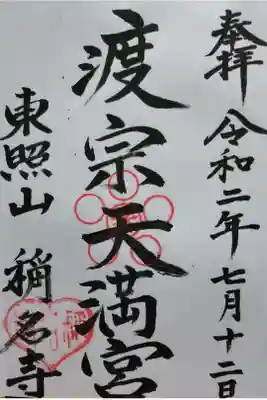 奉拝 令和二年七月十二日
渡宗天満宮
東照山 稱名寺